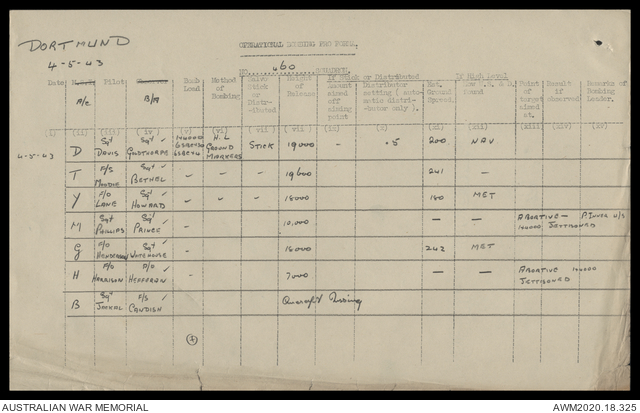 DORTMUND
4-5-43
OPERATIONAL BOMBING PRO FORMA.
NO. 460 SQUADRON.
If Stick or Distributed
If High Level
Date Pilot Bomb Load Method of Bombing Salvo Stick or Distributed Height of Release Amount aimed off aiming point Distributor setting (automatic distributor only). Ground Speed. How found Point of target aimed at. Result if observed Remarks of Bombing Leader.
A/c B/A
(i) (ii) (iii) (iv) (v) (vi) (vii) (viii) (ix) (x) (xi) (xii) (xiii) (xiv) (xv)
4-5-43 D Sgt DAVIS Sgt GOLDTHORPE H.L GROUND MARKERS STICK 19,000 - .5 200 NAV
T F/S MOODIE Sgt BETHEL " " 19,600 241 -
Y F/O LANE Sgt HOWARD " " 18000 180 MET
M Sgt PHILLIPS Sgt PRINCE - 10,000 - - ABORTIVE - P. INNER U/S
JETTISONED
G F/O HENDERSON Sgt WHITEHOUSE - 18000 242 MET
H F/O HARRISON F/O HEFFERAN - 7000 - - ABORTIVE
JETTISONED
B Sgt F/S CANDISH Aircraft Missing
AUSTRALIAN WAR MEMORIAL
AWM2020.18.325